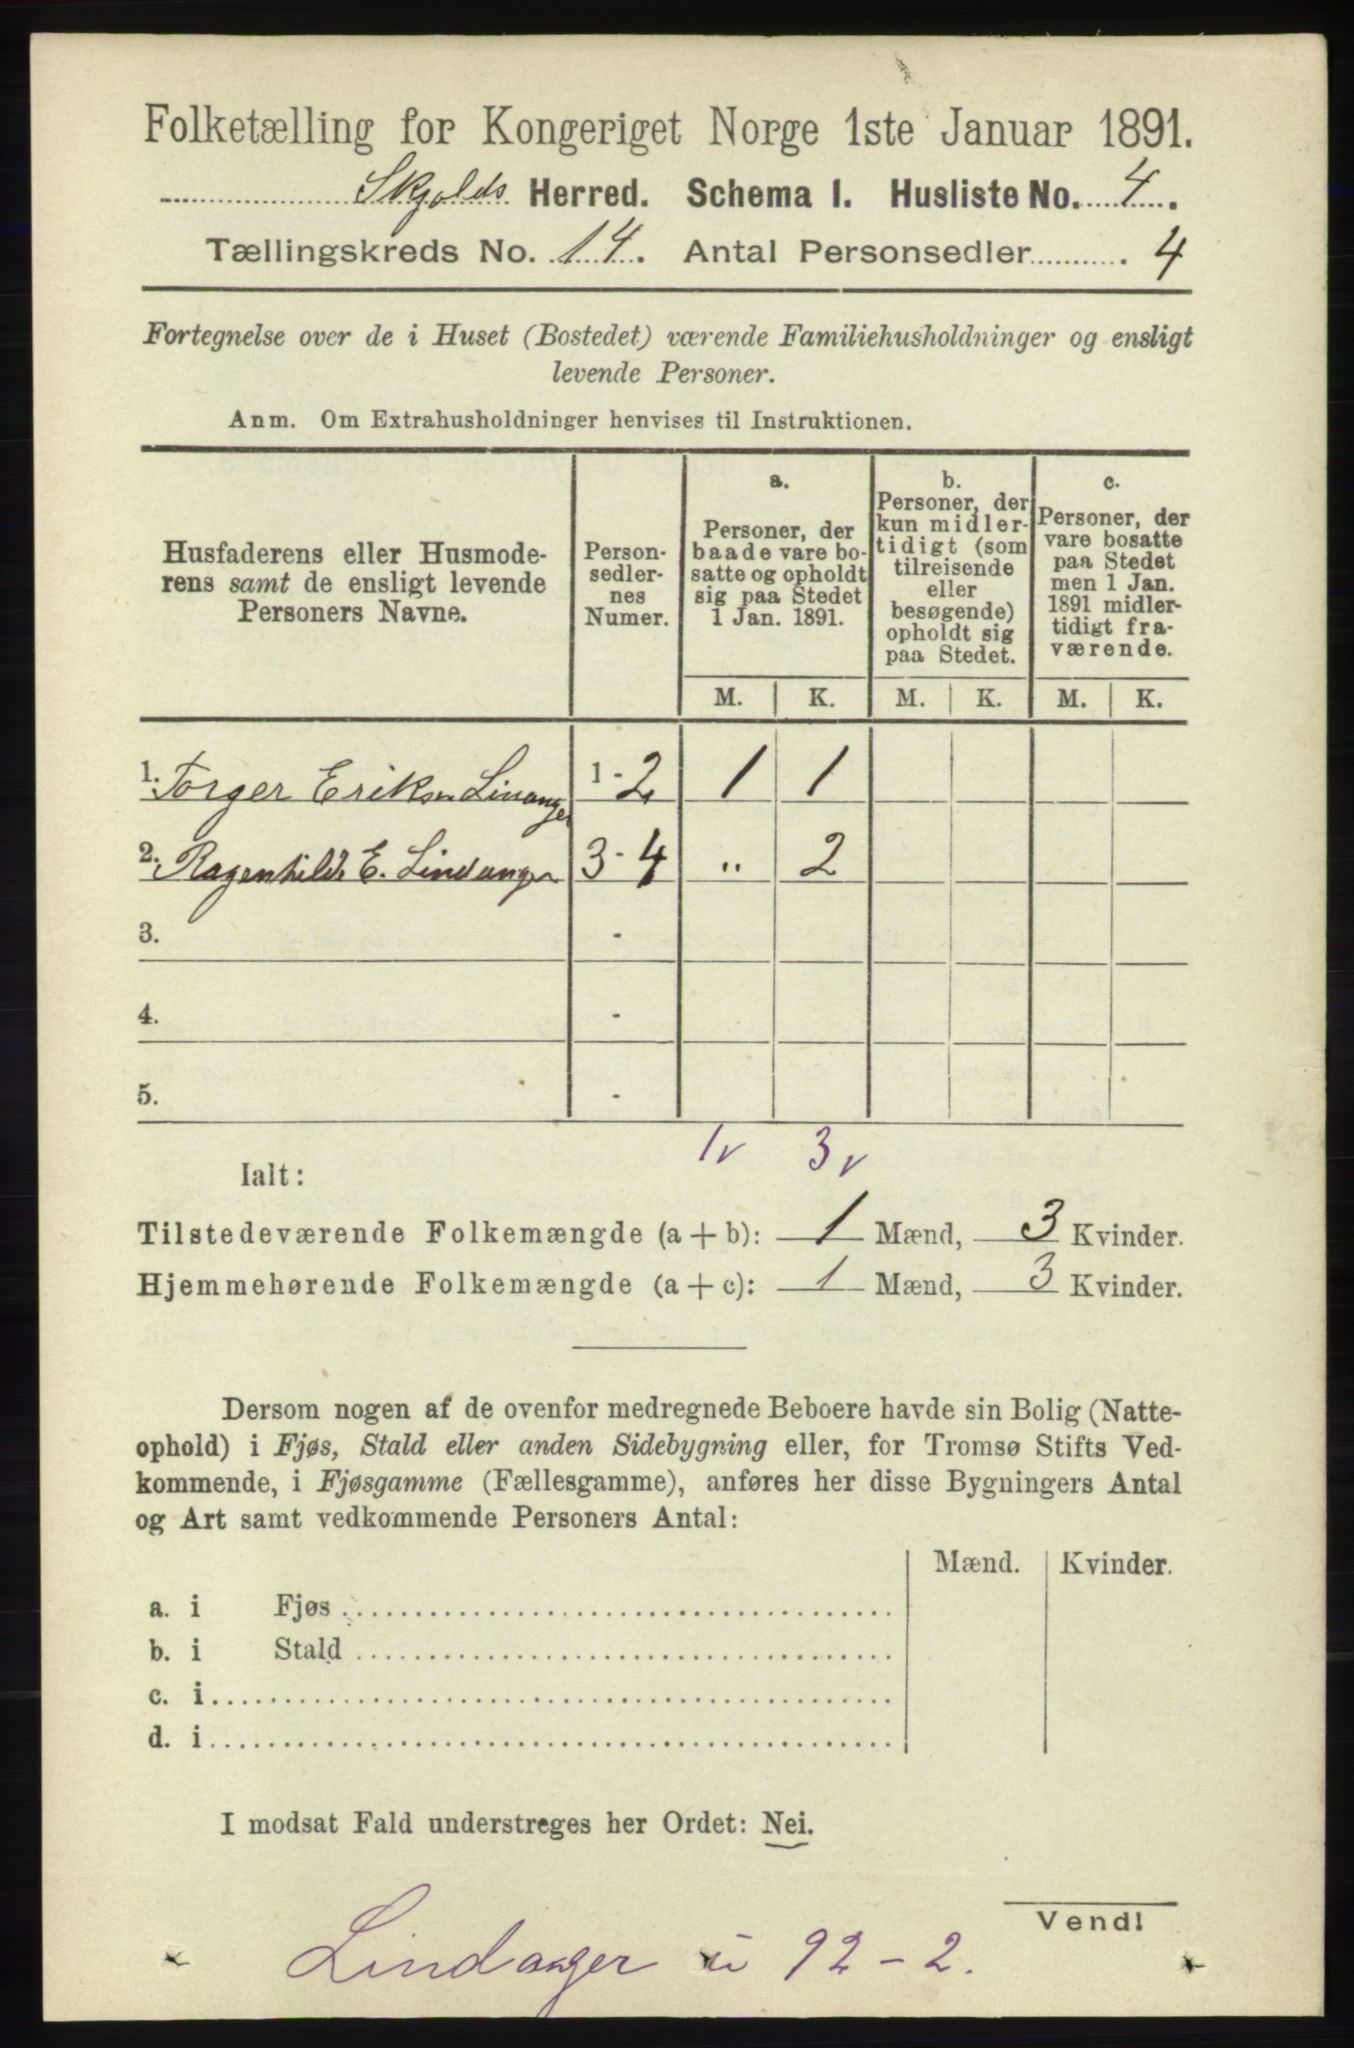 Folketælling for Kongeriget Norge 1ste Januar 1891.
Skjolds Herred. Schema I. Husliste No. 4.
Tællingskreds No. 14. Antal Personsedler 4
Fortegnelse over de i Huset (Bostedet) værende Familiehusholdninger og ensligt
levende Personer.
Anm. Om Extrahusholdninger henvises til Instruktionen.
Husfaderens eller Husmode-
rens samt de ensligt levende
Personers Navne.
Person-
sedler-
nes
Numer.
a.
Personer, der
baade vare bo-
satte og opholdt
sig paa Stedet
1 Jan. 1891.
b.
Personer, der
kun midler-
tidigt (som
tilreisende
eller
besøgende)
opholdt sig
paa Stedet.
c.
Personer, der
vare bosatte
paa Stedet
men 1 Jan.
1891 midler-
tidigt fra-
værende.
M. K. M. K. M. K.
1. Torger Eriksen Linanger 1-2 1 1
2. Ragenhilde E. Lindanger 3-4 " 2
3. -
4. -
5. -
1v 3v
Ialt:
Tilstedeværende Folkemængde (a + b): 1 Mænd, 3 Kvinder.
Hjemmehørende Folkemængde (a + c): 1 Mænd, 3 Kvinder.
Dersom nogen af de ovenfor medregnede Beboere havde sin Bolig (Natte-
ophold) i Fjøs, Stald eller anden Sidebygning eller, for Tromsø Stifts Ved-
kommende, i Fjøsgamme (Fællesgamme), anføres her disse Bygningers Antal
og Art samt vedkommende Personers Antal:
Mænd. Kvinder.
a. i Fjøs
b. i Stald
c. i
d. i
I modsat Fald understreges her Ordet: Nei.
Vend!
Lindanger 92-2.